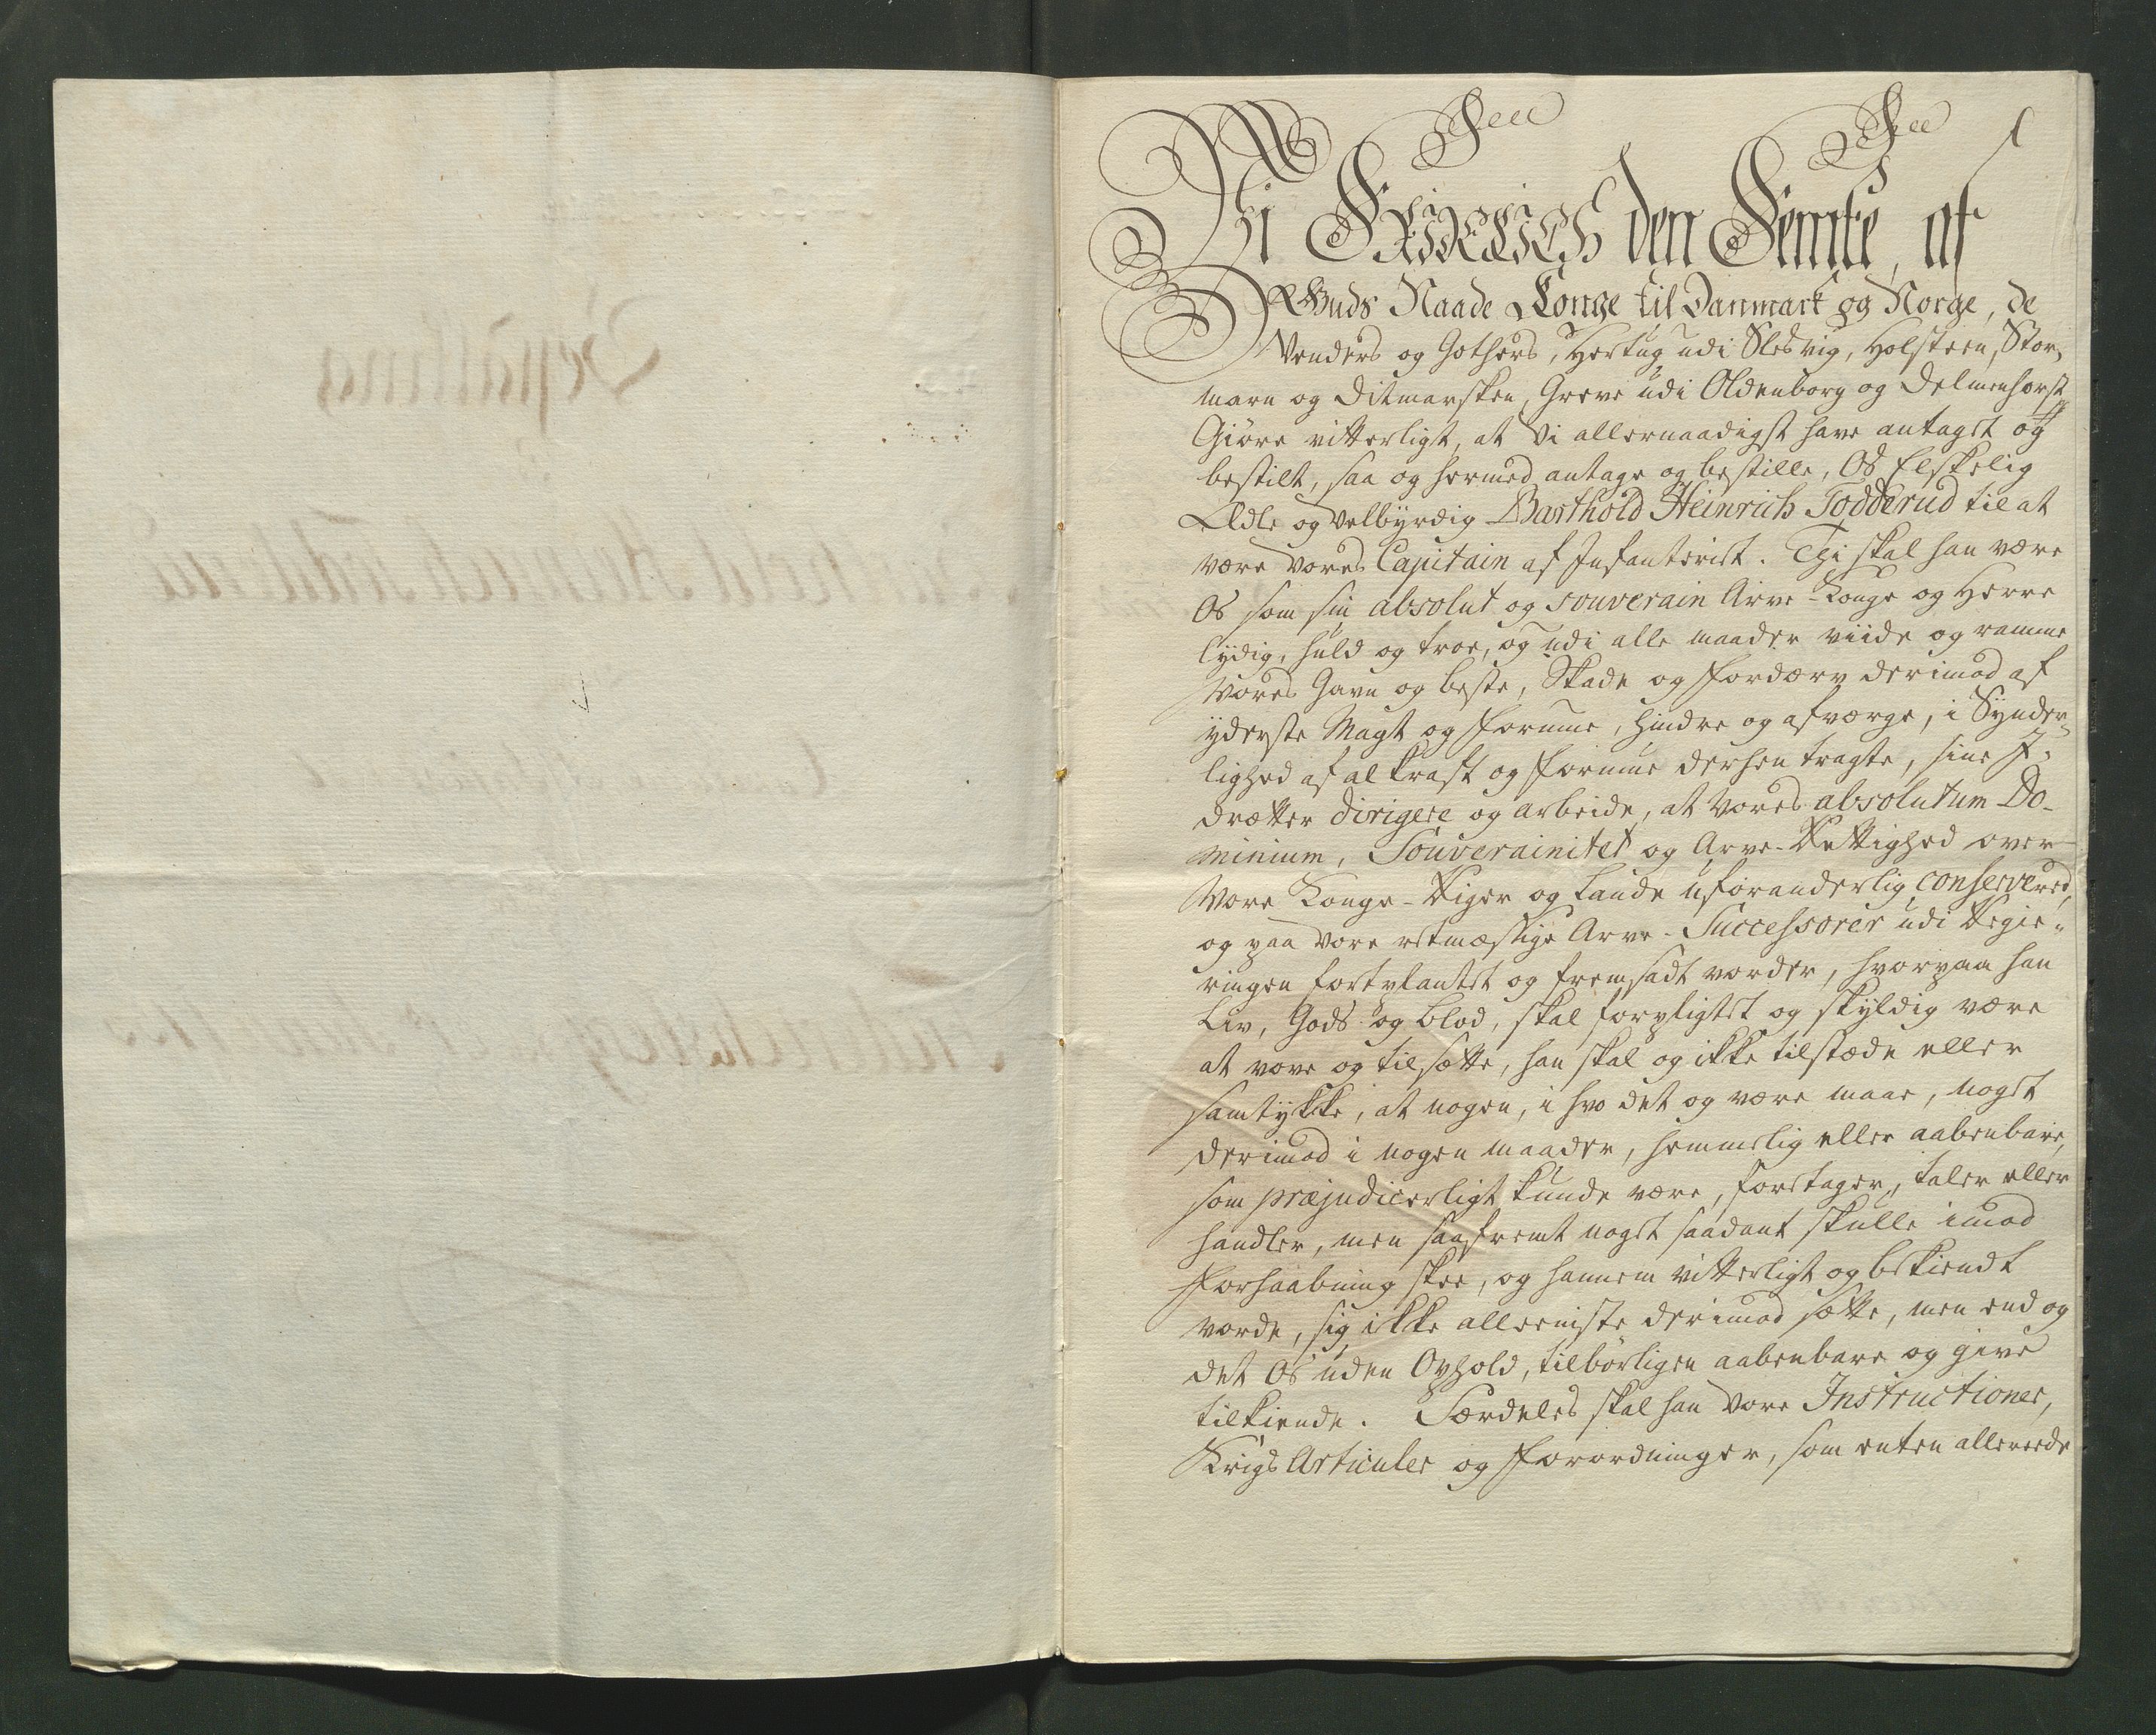 Vi FRIDERICH den Femte, af
Guds Naade Konge til Danmark og Norge, de
Venders og Gothers, Hertug udi Slesvig, Holsteen, Stor„
marn og Ditmarsken, Greve udi Oldenborg og Delmenhorst,
Giöre vitterligt, at Vi allernaadigst have antaget og
bestilt, saa og hermed antage og bestille, Os Elskelig
Ædle og Velbÿrdig Barthold Heinrich Todderud til at
være Vores Capitain af Infanteriet. Thi skal han være
Os som sin absolut og souverain Arve-Konge og Herre
lÿdig, huld og troe, og udi alle maader viide og ramme
Vores Gavn og beste, Skade og Fordærv derimod af
ÿderste Magt og Formue, hindre og afværge, i Synder„
lighed af al Kraft og Formue derhen tragte, sine I„
drætter dirigere og arbeide, at Vores absolutum Do-
minium, Souverainitet og Arve-Rettighed over
Vore Konge-Riger og Lande uforanderlig conserveret,
og paa Vore retmæssige Arve-Successorer udi Regie„
ringen fortplantet og fremsadt vorder, hvorpaa han
Liv, Gods og Blod, skal forpligtet og skÿldig være
at vove og tilsætte, han skal og ikke tilstæde eller
samtÿkke, at nogen, i hvo det og være maae, noget
derimod i nogen maader, hemmelig eller aabenbare,
som præjudicerligt kunde være, foretager, taler eller
handler, men saafremt noget saadant skulle imod
Forhaabning skee, og hannem vitterligt og bekiendt
vorde, sig ikke alleeniste derimod sætte, men end og
det Os uden Ophold, tilbörligen aabenbare og give
tilkiende. Særdeles skal han Vore Instructioner,
Krigs Articuler og Forordninger, som enten allereede